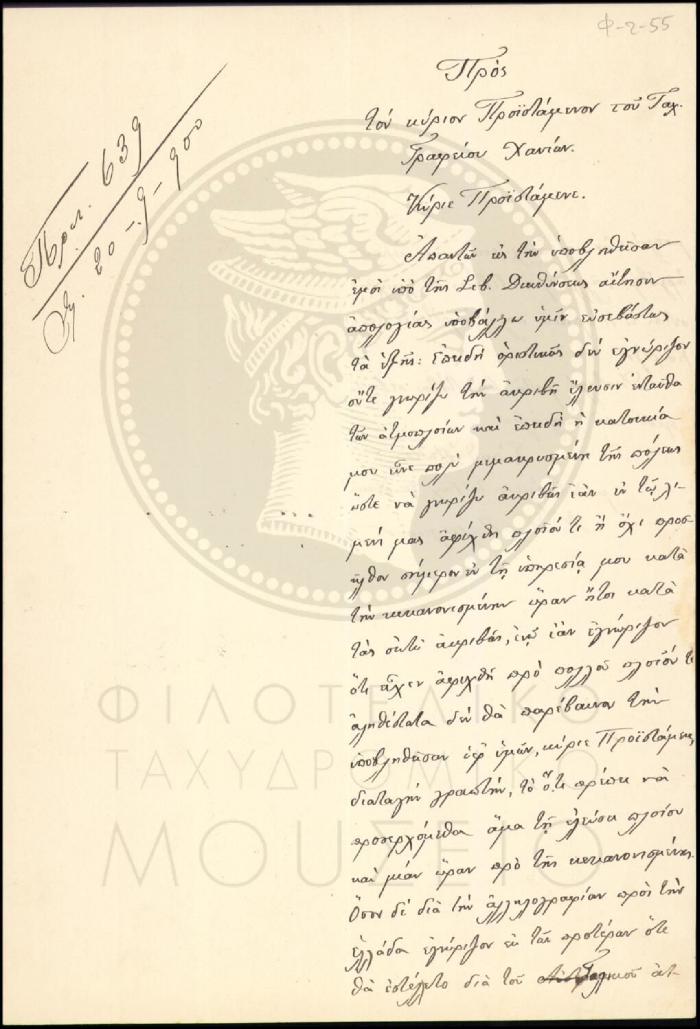 Φ-2-55
Πρωτ. 639
20-9-900
Πρὸς
τὸν κύριον Προϊστάμενον τοῦ Ταχ.
Γραφείου Χανίων.
Κύριε Προϊστάμενε.
Ἀπαντῶν εἰς τὴν ὑποβληθεῖσαν
ἐμοὶ ὑπὸ τῆς Σεβ. Διευθύνσεως αἴτησιν
ἀπολογίας ὑποβάλλω ὑμῖν εὐσεβάστως
τὰ ἑξῆς: Ἐπειδὴ ὁριστικῶς δὲν ἐγνώριζον
οὔτε γνωρίζω τὴν ἀκριβῆ ἔλευσιν ἐνταῦθα
τῶν ἀτμοπλοίων καὶ ἐπειδὴ ἡ κατοικία
μου εἶνε πολὺ μεμακρυσμένη τῆς πόλεως
ὥστε νὰ γνωρίζω ἀκριβῶς ἐὰν ἐν τῷ λι-
μένι μας ἀφίχθη πλοῖόν τι ἢ ὄχι προσ-
ῆλθον σήμερον ἐν τῇ ὑπηρεσίᾳ μου κατὰ
τὴν κεκανονισμένην ὥραν ἤτοι κατὰ
τὰς ὀκτὼ ἀκριβῶς, ἐνῷ ἐὰν ἐγνώριζον
ὅτι εἶχεν ἀφιχθῆ πρὸ πολλοῦ πλοῖόν τι
ἀληθέστατα δὲν θὰ παρέβαινον τὴν
ὑποβληθεῖσαν ἐφ' ἡμῶν, κύριε Προϊστάμενε,
διαταγὴν γραπτήν, τὸ ὅτι πρέπει νὰ
προσερχόμεθα ἅμα τῇ ἐλεύσει πλοίου
καὶ μίαν ὥραν πρὸ τῆς κεκανονισμένης.
Ὅσον δὲ διὰ τὴν ἀλληλογραφίαν πρὸς τὴν
Ἑλλάδα ἐγνώριζον ἐκ τῶν προτέρων ὅτι
θὰ ἐστέλλετο διὰ τοῦ ἀτ-
ΦΙΛΟΤΕΛΙΚΟ
ΤΑΧΥΔΡΟΜΙΚΟ
ΜΟΥΣΕΙΟ